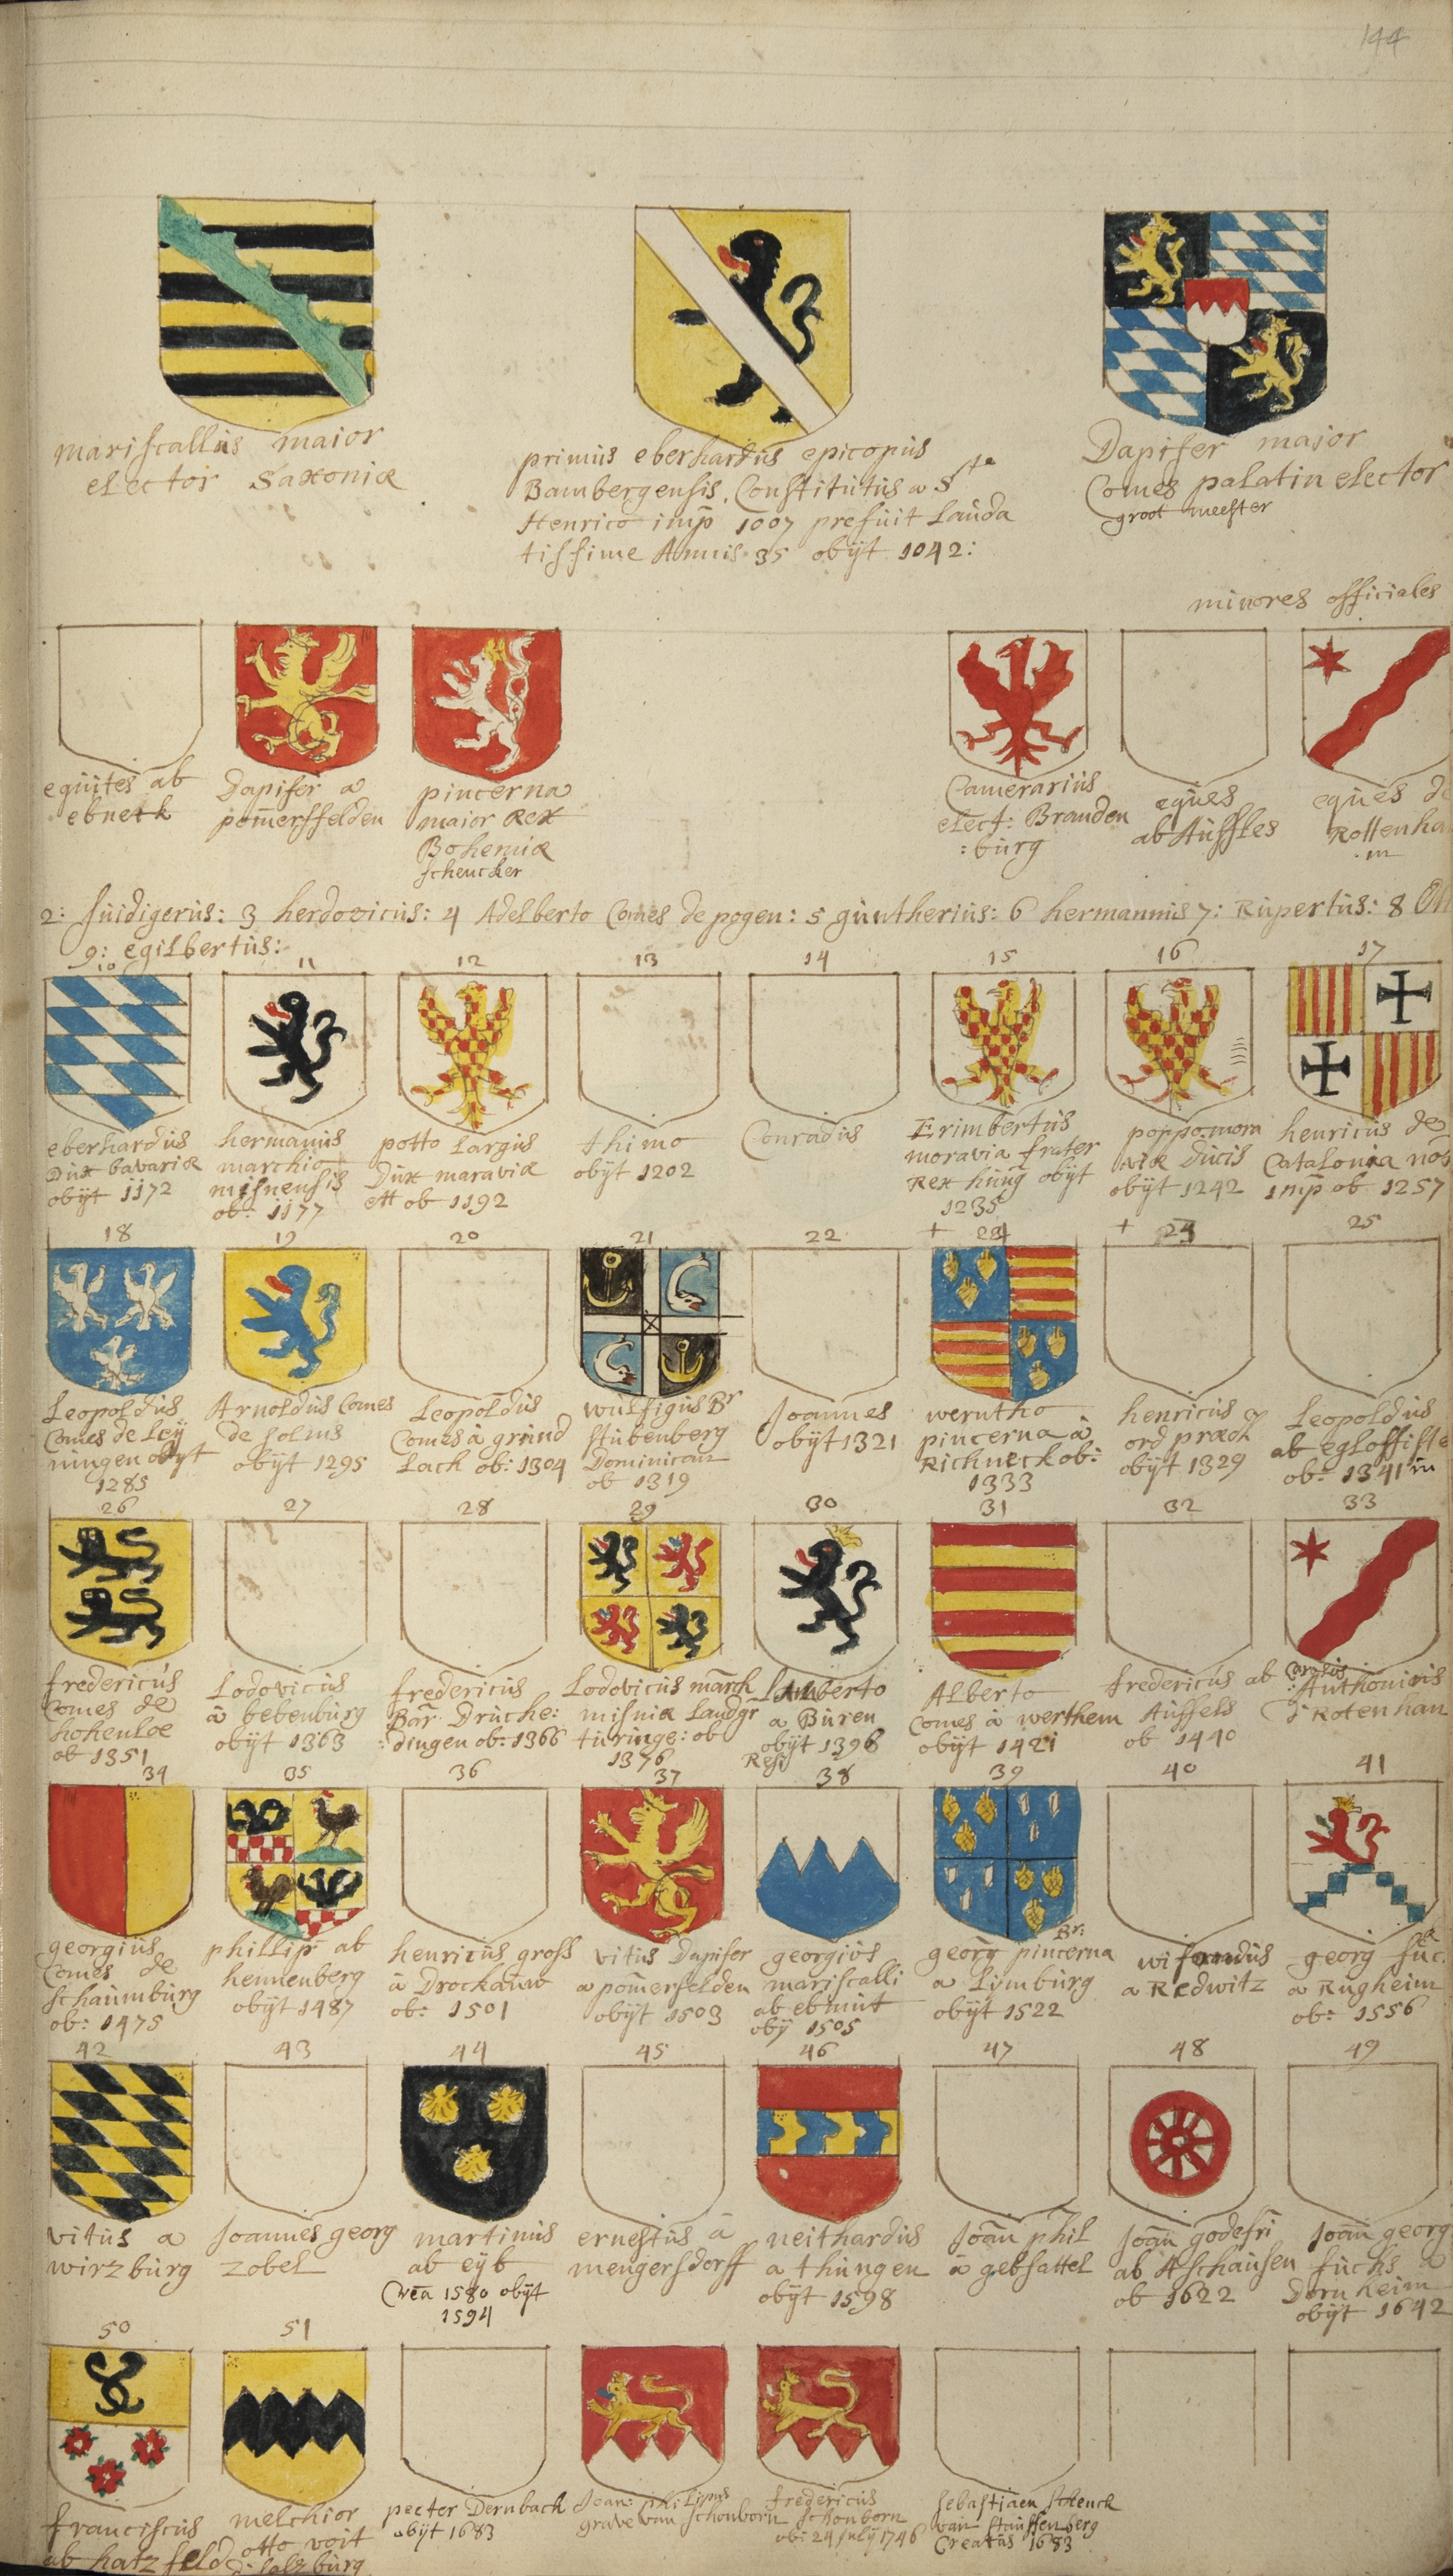 144
mariscallus maior
elector Saxoniæ
primus eberhardus epicopus
Bambergensis. Constitutus a Ste
Henrico imp 1007 prefuit Lauda
tissime Annis 35 obijt 1042:
Dapifer major
Comes palatin elector
groot meester
minores officiales
equites ab
ebnetk
Dapifer a
pomerssfelden
pincerna
maior Rex
Bohemiæ
schencker
Camerarius
elect: Branden
:burg
eques
ab Auffles
eques de
Rottenha
:m
2: suidigerus: 3 herdovicus: 4 Adelberto Comes de pogen: 5 guntherius: 6 hermannus 7: Rupertus: 8
9: egilbertus:
10
eberhardus
Dux bavariæ
obijt 1172
11
hermanus
marchio
misnensis
ob: 1177
12
potto Largus
Dux maraviæ
ett ob 1192
13
thimo
obijt 1202
14
Conradus
15
Erimbertus
moravia frater
Rex hung obijt
1235
16
poppo mora
viæ Ducis
obijt 1242
17
henricus de
Catalonia nos
imp ob 1257
18
Leopoldus
Comes de Ley
ningen obyt
1285
19
Arnoldus Comes
de solms
obijt 1295
20
Leopoldus
Comes à grund
Lach ob: 1304
21
wulfigus Br
stubenberg
Dominican
ob 1319
22
Joannes
obijt 1321
+ 24
werntho
pincerna à
Richneck ob:
1333
+ 23
henricus
ord præd
obijt 1329
25
Leopoldus
ab egloffste
ob: 1341 in
26
fredericus
Comes de
hohenloe
ob 1351
27
Lodovicus
à bebenburg
obijt 1363
28
fredericus
Bar. Druche:
:dingen ob: 1366
29
Lodovicus march
misniæ Landgr
turinge: ob
1376
30
Lamberto
a Buren
obijt 1396
Resi
31
Alberto
Comes à werthem
obijt 1421
32
fredericus ab
Auffels
ob 1440
33
Anthonius
d Rotenhan
34
georgius
Comes de
schaumburg
ob: 1475
35
phillip ab
hennenberg
obijt 1487
36
henricus gross
à Drockauw
ob: 1501
37
vitus Dapifer
a pomersfelden
obijt 1503
38
georgius
mariscalli
ab ebnut
obij 1505
39
georg pincerna Br:
a Limburg
obijt 1522
40
wifandus
a Redwitz
41
georg fuc.
a Rugheim
ob: 1556
42
vitus a
wirzburg
43
Joannes georg
zobel
44
martinus
ab eyb
Crea 1580 obijt
1594
45
ernestus à
mengersdorff
46
neithardus
a thungen
obijt 1598
47
Joan phil
à gebsattel
48
Joan godefri
ab Aschausen
ob 1622
49
Joan georg
fuchs a
Dornheim
obijt 1642
50
franciscus
ab hatzfeld
51
melchior
otto voit
d: salzburg
peeter Dernbach
obijt 1683
Joan: philipus
grave van schonborn
fredericus
schonborn
ob: 24 july 1746
sebastiaen schenck
van stauffenberg
Creatus 1683